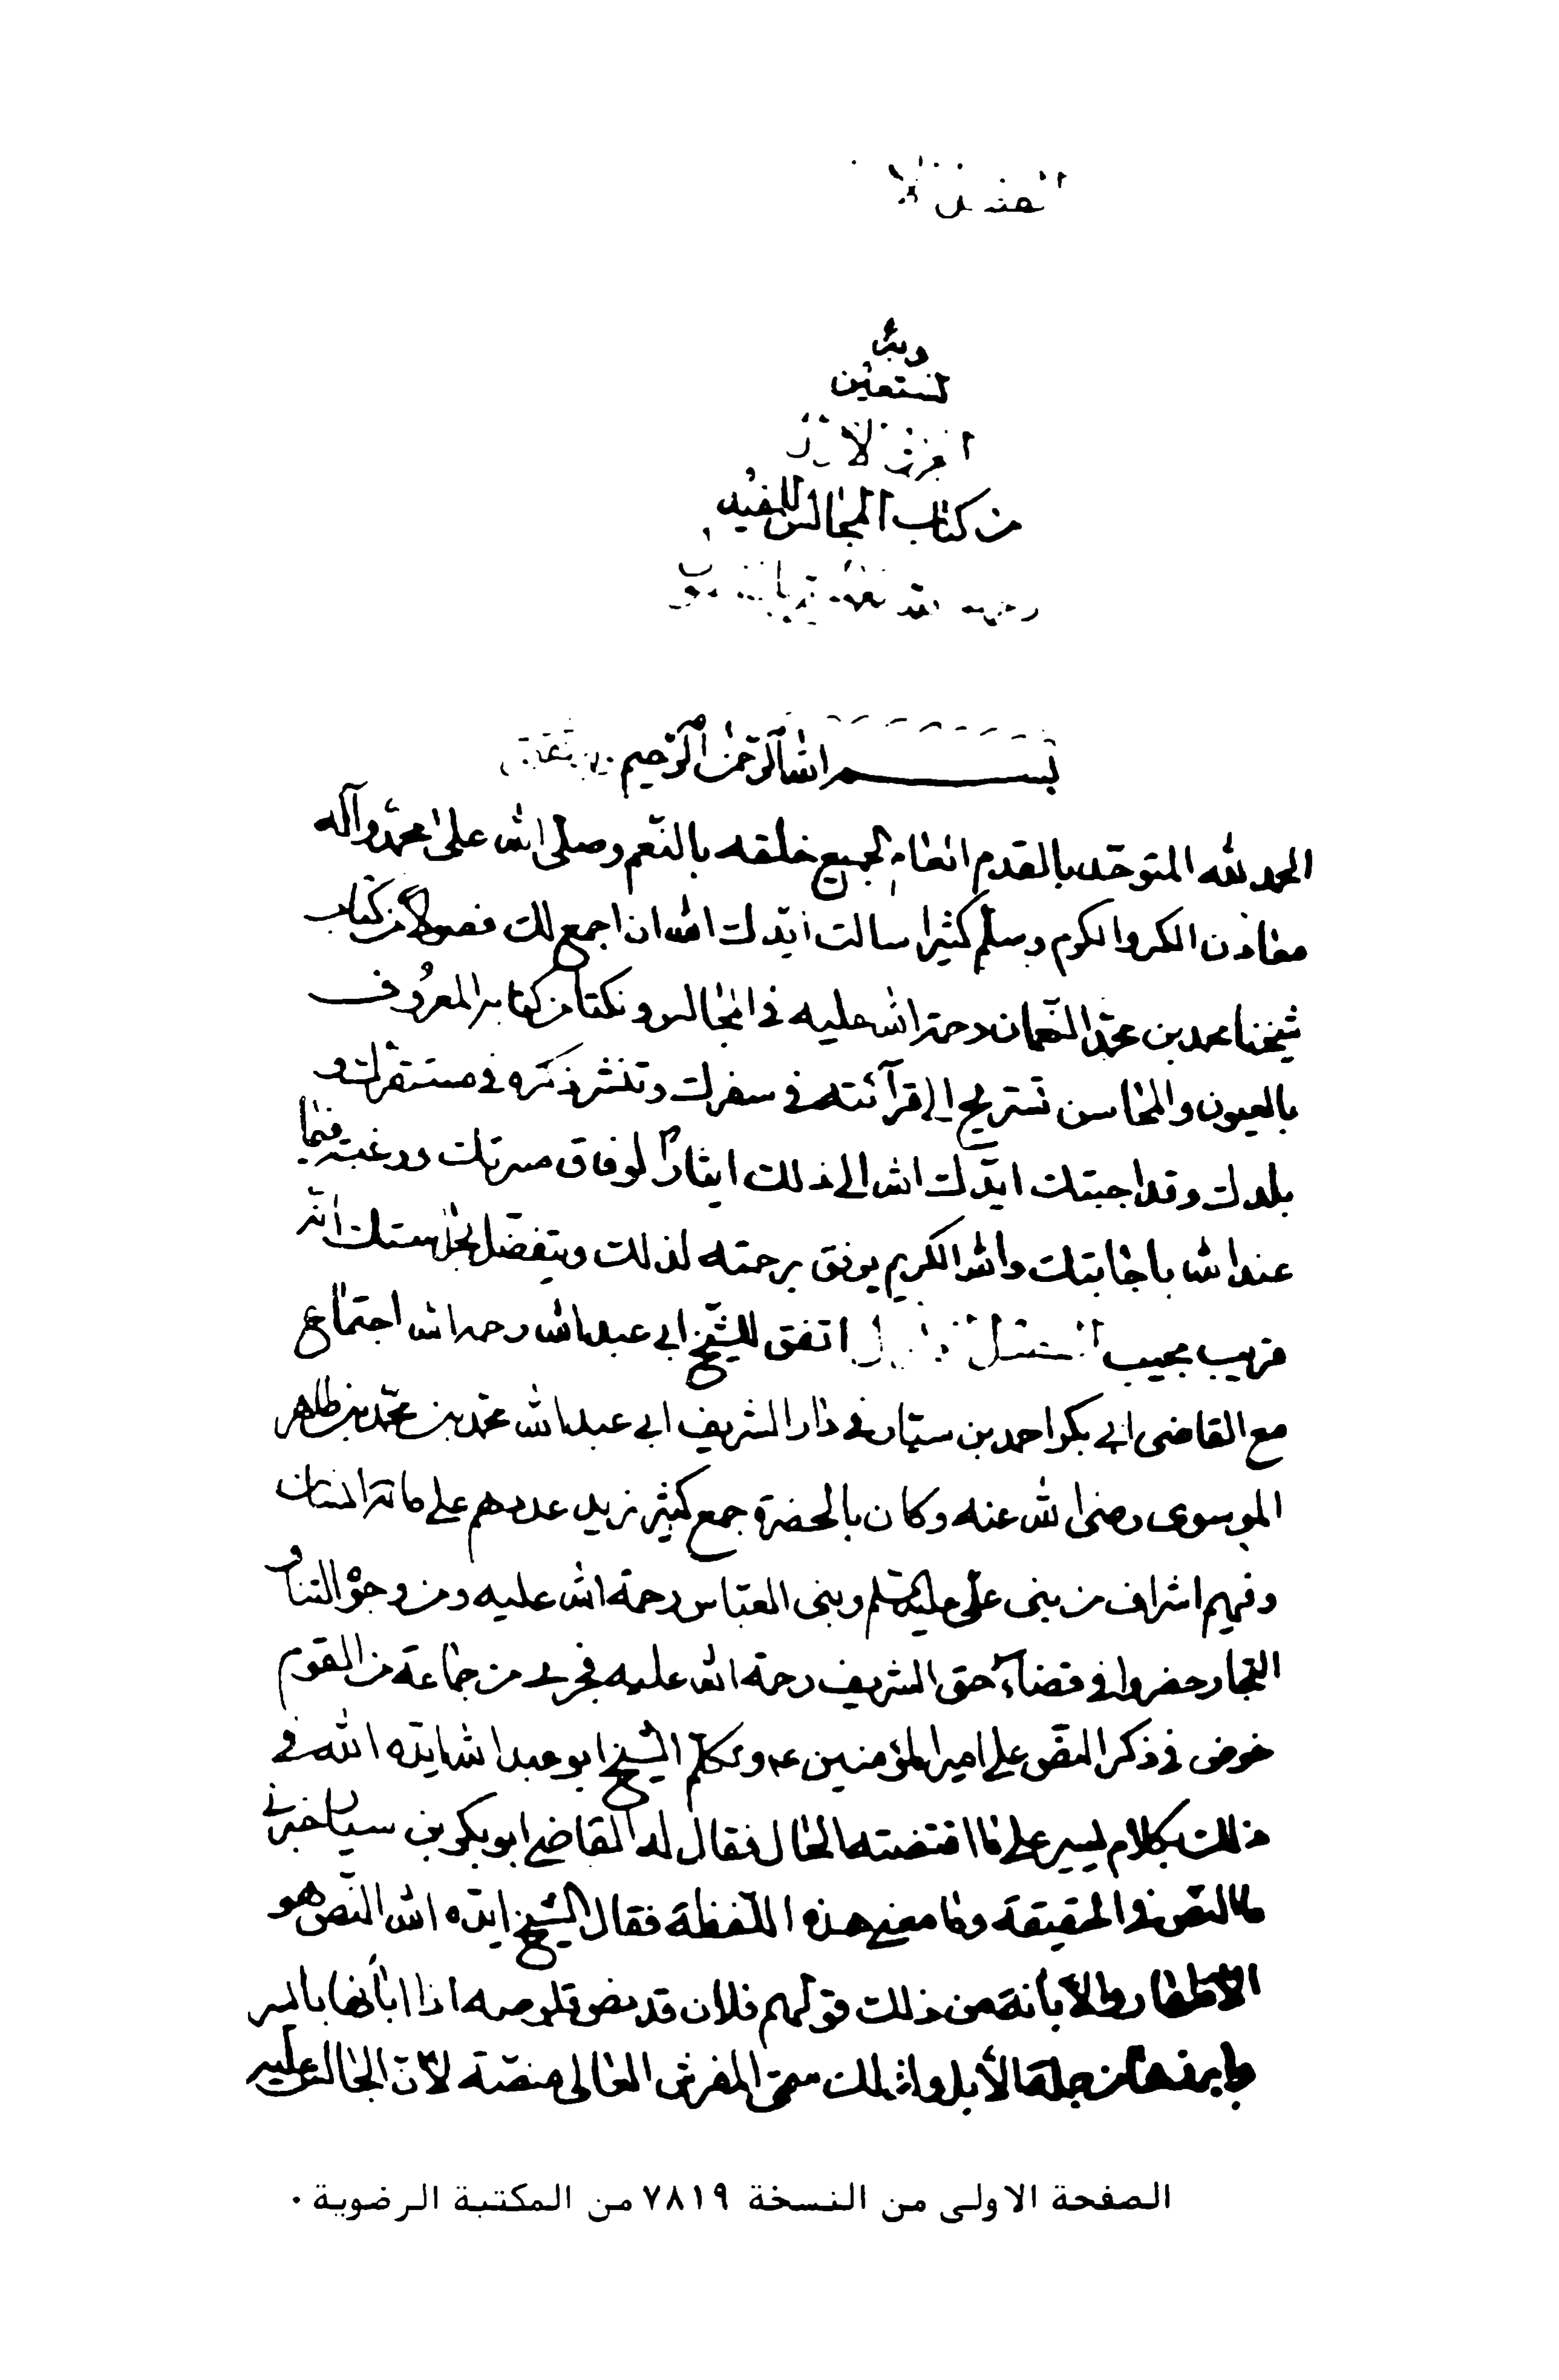 وبه
نستعين
من كتاب المجالس للمفيد
بسم الله الرحمن الرحيم
الحمد لله المتوحد بالقدم العام لجميع خلقه بالنعم وصلى الله على محمد وآله
معادن الكرم وسلم كثيرا سالت ايدك الله ان اجمع لك فصولا من كتاب
شيخنا محمد بن محمد النعمان رحمة الله عليه في المجالس ونكتا من كتابه المعروف
بالعيون والمحاسن تستريح الى قرآئته في سفرك وتنشر ذكره في مستقرك و
بلدك وقد اجبتك ايدك الله الى ذلك ايثارا لوفاق مسرتك ورغبة فيما
عند الله باجابتك والله الكريم يوفق برحمته لذلك ويتفضل بحراستك انه
قريب مجيب اتفق للشيخ ابي عبد الله رحمه الله اجتماع
مع القاضى ابي بكر احمد بن سيار في دار الشريف ابي عبد الله محمد بن محمد بن طاهر
الموسوى رضى الله عنه وكان بالحضرة جمع كثير يزيد عددهم على مائة انسان
وفيهم اشراف من بنى على عليه السلم وبنى العباس رحمة الله عليه ومن وجوه الناس و
التجار حضروا في قضاء حق الشريف رحمة الله عليه فجرى من جماعة من القوم
خوض في ذكر النص على امير المؤمنين عم وتكلم الشيخ ابو عبد الله ايده الله في
ذلك بكلام يسير على ما اقتضته الحال فقال له القاضي ابو بكر بن سيار اخبرني
ما النص في الحقيقة وما معنى هذه اللفظة فقال الشيخ ايده الله النص هو
الاظهار والأبانة من ذلك قولهم فلان قد نص قلوصه اذا ابانها بالسير
وابرزها من جملة الأبل ولذلك سمى المفرش العالى منصة لأن الجالس عليه
الصفحة الاولى من النسخة ٧٨١٩ من المكتبة الرضوية .